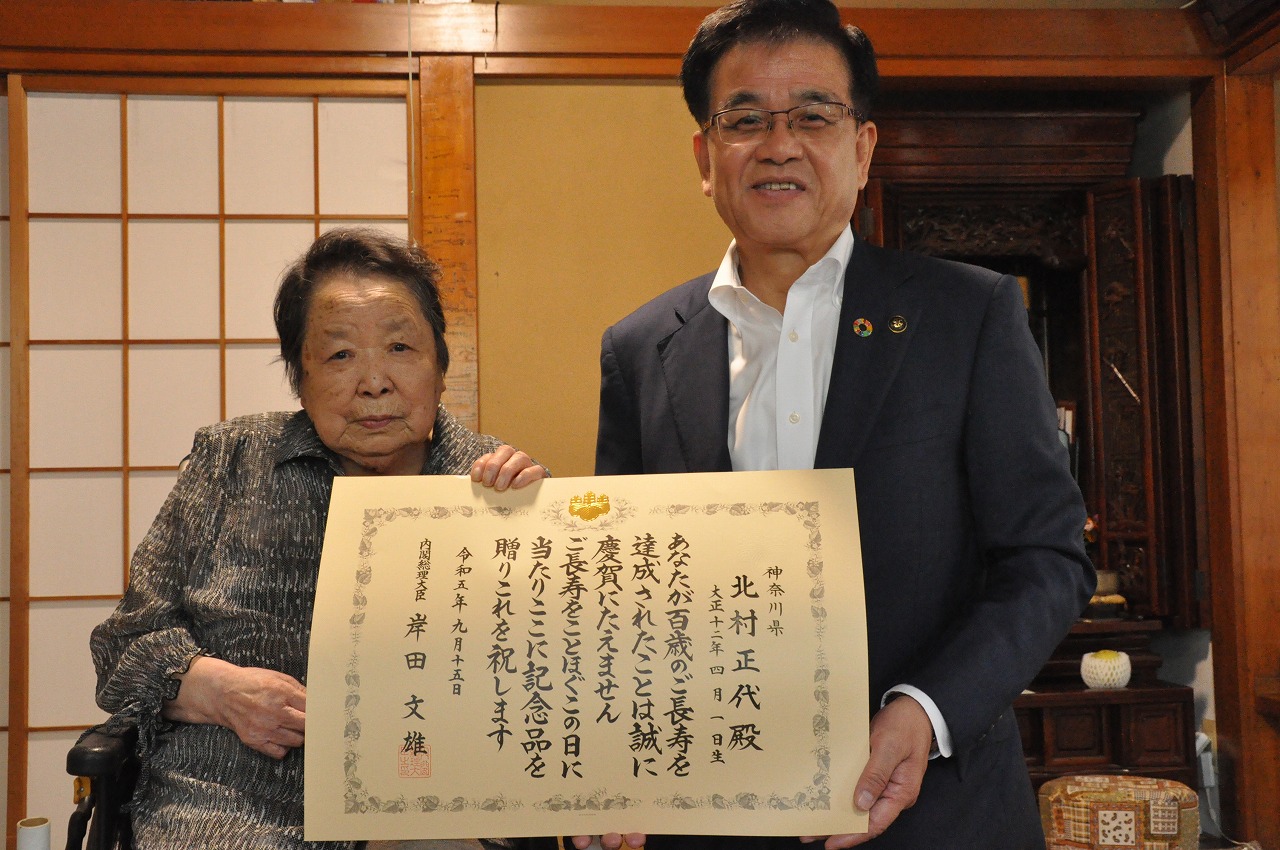 神奈川県
北村正代殿
大正十二年四月一日生
あなたが百歳のご長寿を
達成されたことは誠に
慶賀にたえません
ご長寿をことほぐこの日に
当たりここに記念品を
贈りこれを祝します
令和五年九月十五日
内閣総理大臣 岸田文雄